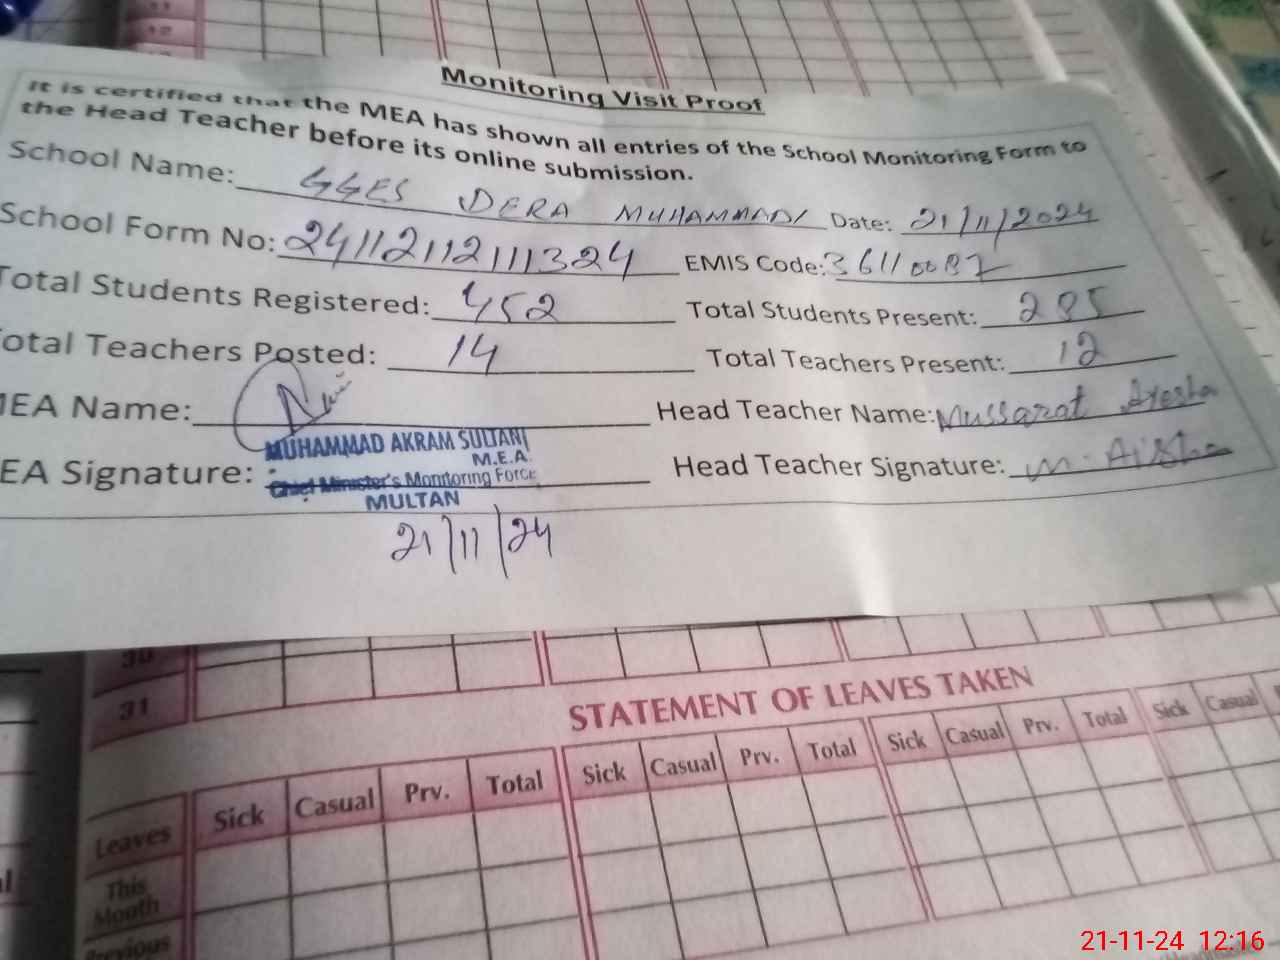 11
12
Monitoring Visit Proof
It is certified that the MEA has shown all entries of the School Monitoring Form to
the Head Teacher before its online submission.
School Name: GGES DERA MUHAMMADI Date: 21/11/2024
School Form No: 24112112111324 EMIS Code: 36110037
Total Students Registered: 452 Total Students Present:
otal Teachers Posted: 14 Total Teachers Present: 12
MEA Name: Head Teacher Name: Mussarat Ayesha
EA Signature: Head Teacher Signature: M. Aisha
MUHAMMAD AKRAM SULTANI
M.E.A
Chief Minister's Monitoring Force
MULTAN
21/11/24
30
31
STATEMENT OF LEAVES TAKEN
Leaves Sick Casual Prv. Total Sick Casual Prv. Total Sick Casual Prv. Total Sick Casual
This
Month
Previous
21-11-24 12:16